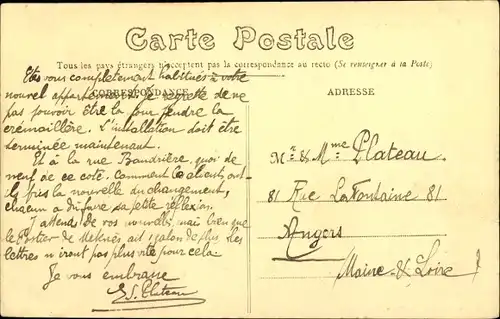 Carte Postale
Tous les pays étrangers n'acceptent pas la correspondance au recto (Se renseigner à la Poste)
CORRESPONDANCE
ADRESSE
Etes vous complètement habitués à votre
nouvel appartement. Je regrette de ne
pas pouvoir être là pour pendre la
crémaillère. L'installation doit être
terminée maintenant.
Et à la rue Baudrière, quoi de
neuf de ce coté. Comment les clients ont-
ils pris la nouvelle du changement,
chacun a dû faire sa petite réflexion.
J'attends de vos nouvelles, mais bien que
le Postier de ait 1 galon de plus, les
lettres n'iront pas plus vite pour cela
Je vous embrasse
S. Plateau
Mr & Mme Plateau
81 Rue LaFontaine 81
Angers
Maine & Loire